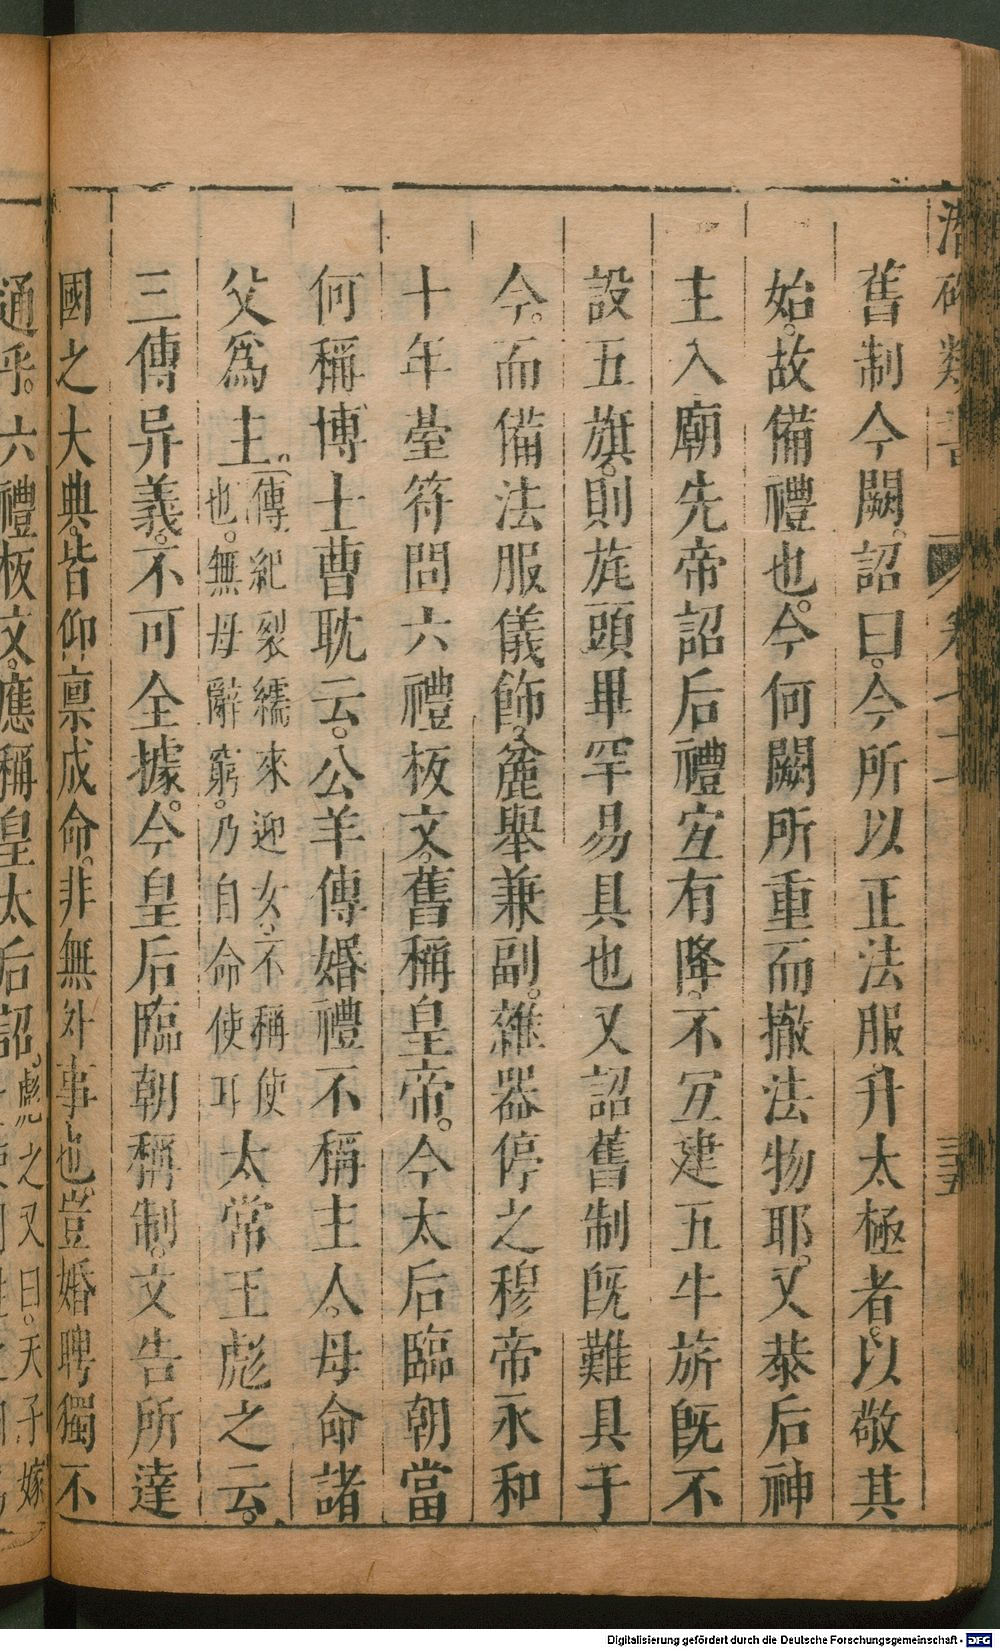 潛確類書
卷七十
三五
舊制今闕。詔曰。今所以正法服。升太極者。以敬其
始。故備禮也。今何闕所重而撤法物耶。又恭后神
主入廟先帝詔后禮宜有降。不宜建五牛旂旣不
設五旗。則旄頭畢罕易具也又詔舊制旣難具于
今。而備法服儀飾。麄舉兼副。雜器停之穆帝永和
十年臺符問六禮板文。舊稱皇帝。今太后臨朝當
何稱博士曹耽云。公羊傳婚禮不稱主人。母命諸
父爲主。
傳紀裂繻來迎女。不稱使
也。無母辭窮。乃自命使耳
太常王彪之云。
三傳异義。不可全據。今皇后臨朝稱制。文告所達
國之大典。皆仰禀成命。非無外事也豈婚聘獨不
通乎。六禮板文。應稱皇太后詔。
彪之又曰。天子嫁
Digitalisierung gefördert durch die Deutsche Forschungsgemeinschaft - DFG